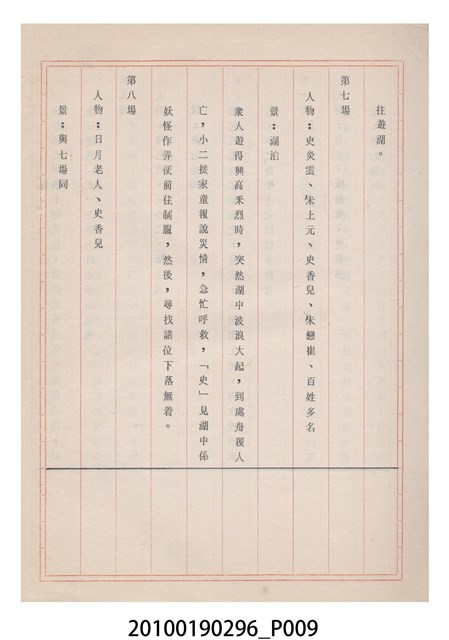 往遊湖。
第七場
人物：史炎雲、朱上元、史香兒、朱戀崔、百姓多名
景：湖泊
衆人遊得興高釆烈時，突然湖中波浪大起，到處舟覆人
亡，小二接家童報說災情，急忙呼救，「史」見湖中係
妖怪作弄便前往制服，然後，尋找諸位下落無着。
第八場
人物：日月老人、史香兒
景：與七場同
20100190296_P009